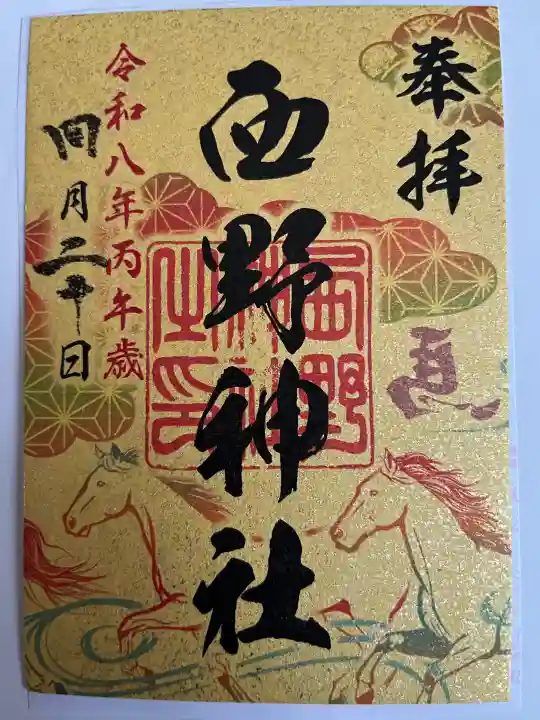 奉拝
馬
西野神社
西野
神社
之印
令和八年丙午歳
四月二十日